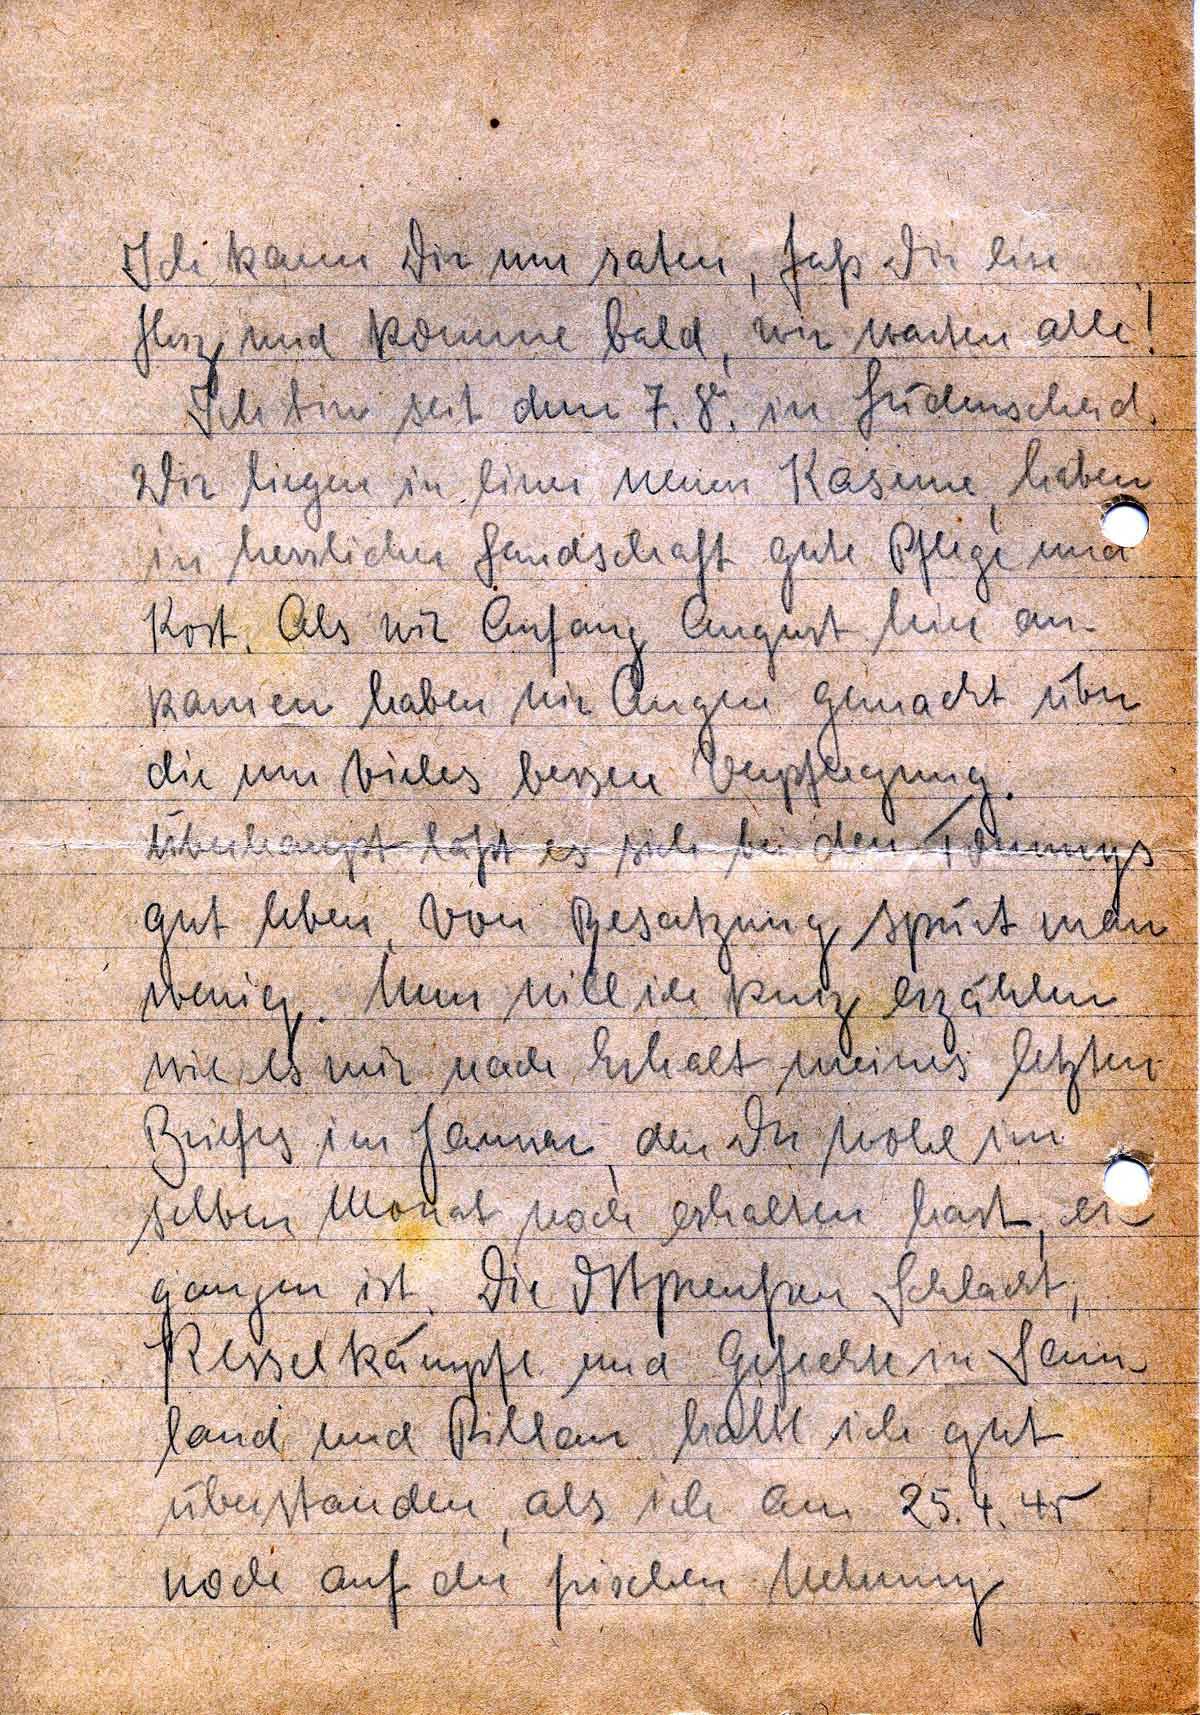 Ich kann Dir nur raten, faß Dir ein
Herz und komme bald, wir warten alle!
Ich bin seit dem 7.8. in Lüdenscheid.
Wir liegen in einer neuen Kaserne, haben
in herrlicher Landschaft gute Pflege und
Kost. Als wir Anfang August hier an-
kamen haben wir Augen gemacht über
die um vieles bessere Verpflegung.
Überhaupt läßt es sich bei den Tommys
gut leben, von Besatzung spürt man
wenig. Nun will ich kurz erzählen
wie es mir nach Erhalt meines letzten
Briefes im Jänner, den Du wohl im
selben Monat noch erhalten hast, er-
gangen ist. Die Ostpreußen Schlacht,
Kesselkämpfe und Gefechte in Sam-
land und Pillau hatte ich gut
überstanden, als ich am 25.4.45
noch auf der frischen Nehrung